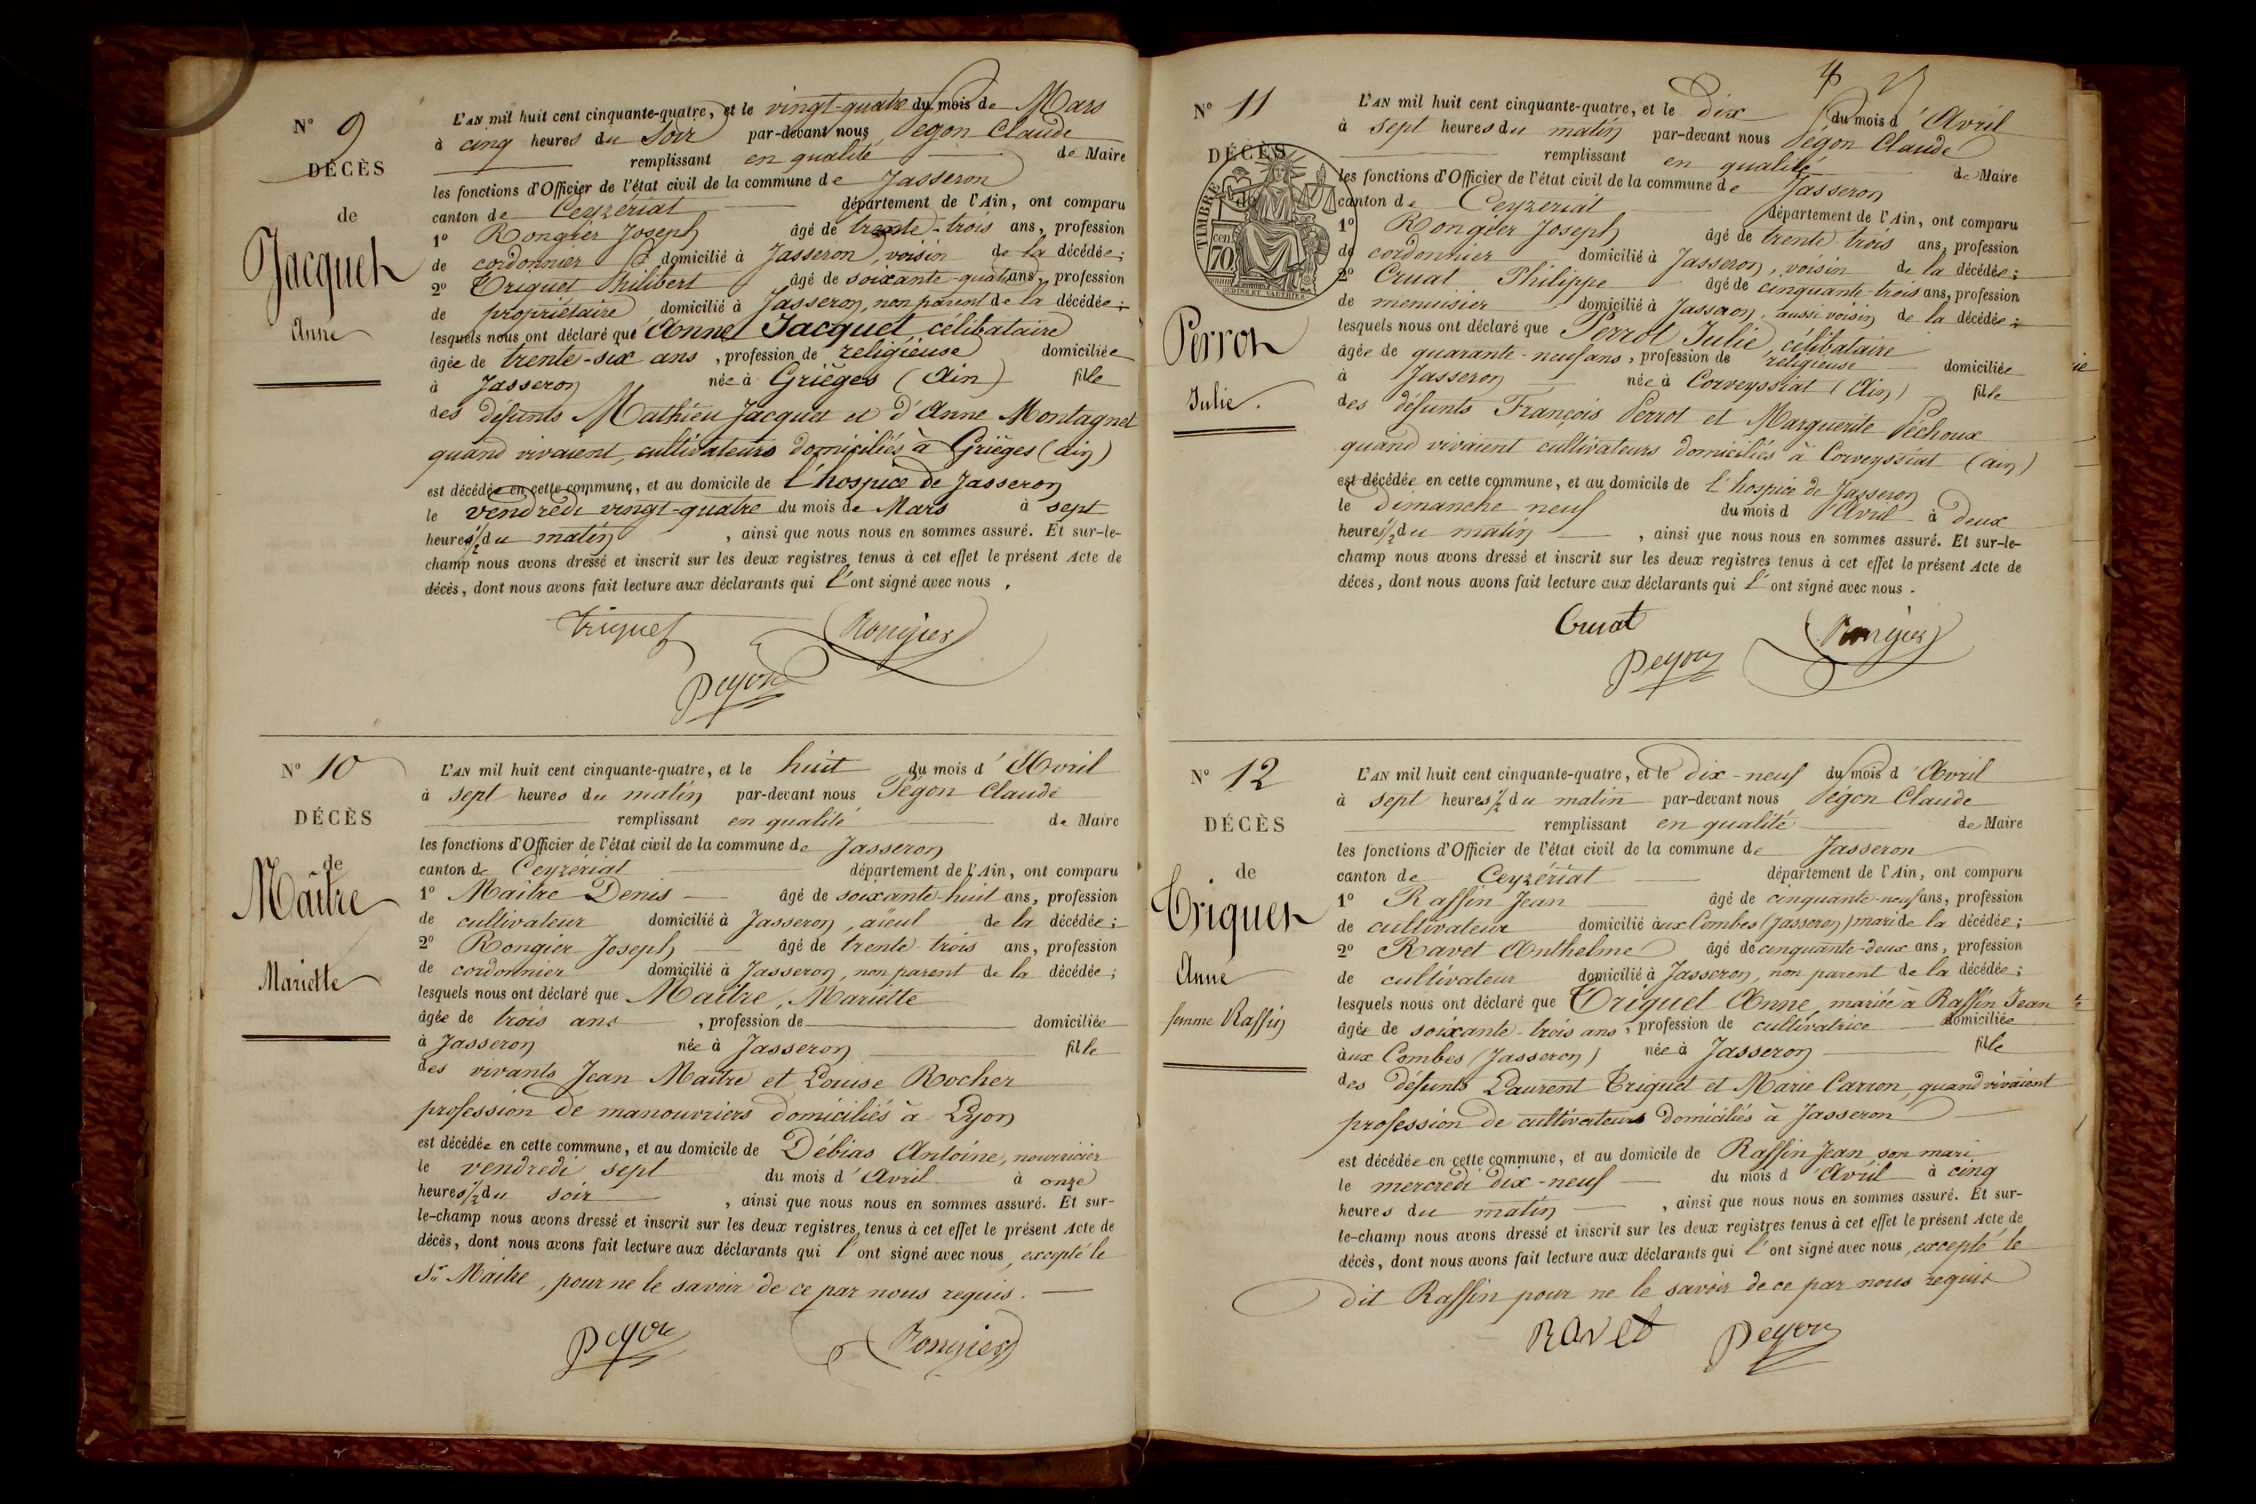 N° 9
DÉCÈS
de
Jacquet
Anne
L'AN mil huit cent cinquante-quatre, et le vingt-quatre du mois de Mars
à cinq heures du soir par-devant nous Pégon Claude
remplissant en qualité de Maire
les fonctions d'Officier de l'état civil de la commune de Jasseron
canton de Ceyzériat département de l'Ain, ont comparu
1° Rongier Joseph âgé de trente-trois ans, profession
de cordonnier domicilié à Jasseron, voisin de la décédée;
2° Triquet Philibert âgé de soixante-quatre ans, profession
de propriétaire domicilié à Jasseron, non parent de la décédée;
lesquels nous ont déclaré que Anne Jacquet, célibataire
âgée de trente-six ans, profession de religieuse domiciliée
à Jasseron née à Grièges (Ain) fille
des défunts Mathieu Jacquet et d'Anne Montagnet
quand vivaient, cultivateurs domiciliés à Grièges (ain)
est décédée en cette commune, et au domicile de l'hospice de Jasseron
le vendredi vingt-quatre du mois de Mars à sept
heures ½ du matin, ainsi que nous nous en sommes assuré. Et sur-le-
champ nous avons dressé et inscrit sur les deux registres tenus à cet effet le présent Acte de
décès, dont nous avons fait lecture aux déclarants qui l'ont signé avec nous.
Triquet Rongier
Pegon
N° 10
DÉCÈS
de
Maître
Mariette
L'AN mil huit cent cinquante-quatre, et le huit du mois d'Avril
à sept heures du matin par-devant nous Pégon Claude
remplissant en qualité de Maire
les fonctions d'Officier de l'état civil de la commune de Jasseron
canton de Ceyzériat département de l'Ain, ont comparu
1° Maître Denis âgé de soixante-huit ans, profession
de cultivateur domicilié à Jasseron, aïeul de la décédée;
2° Rongier Joseph âgé de trente-trois ans, profession
de cordonnier domicilié à Jasseron, non parent de la décédée;
lesquels nous ont déclaré que Maître, Mariette
âgée de trois ans, profession de domiciliée
à Jasseron née à Jasseron fille
des vivants Jean Maître et Louise Rocher
profession de manouvriers domiciliés à Lyon
est décédée en cette commune, et au domicile de Débias Antoine, nourricier
le vendredi sept du mois d'Avril à onze
heures ½ du soir, ainsi que nous nous en sommes assuré. Et sur-
le-champ nous avons dressé et inscrit sur les deux registres tenus à cet effet le présent Acte de
décès, dont nous avons fait lecture aux déclarants qui l'ont signé avec nous, excepté le
Sr Maître, pour ne le savoir de ce par nous requis.
Pegon Rongier
N° 11
DÉCÈS
TIMBRE
cen.
70
Perrot
Julie.
L'AN mil huit cent cinquante-quatre, et le dix du mois d'Avril
à sept heures du matin par-devant nous Pégon Claude
remplissant en qualité de Maire
les fonctions d'Officier de l'état civil de la commune de Jasseron
canton de Ceyzériat département de l'Ain, ont comparu
1° Rongier Joseph âgé de trente-trois ans, profession
de cordonnier domicilié à Jasseron, voisin de la décédée;
2° Cruat Philippe âgé de cinquante-trois ans, profession
de menuisier domicilié à Jasseron, aussi voisin de la décédée;
lesquels nous ont déclaré que Perrot Julie, célibataire
âgée de quarante-neuf ans, profession de religieuse domiciliée
à Jasseron née à Corveyssiat (Ain) fille
des défunts François Perrot et Marguerite Péchoux
quand vivaient cultivateurs domiciliés à Corveyssiat (ain)
est décédée en cette commune, et au domicile de l'hospice de Jasseron
le Dimanche neuf du mois d'Avril à deux
heures ½ du matin, ainsi que nous nous en sommes assuré. Et sur-le-
champ nous avons dressé et inscrit sur les deux registres tenus à cet effet le présent Acte de
décès, dont nous avons fait lecture aux déclarants qui l'ont signé avec nous.
Cruat Rongier
Pegon
N° 12
DÉCÈS
de
Triquet
Anne
femme Raffin
L'AN mil huit cent cinquante-quatre, et le dix-neuf du mois d'Avril
à sept heures ½ du matin par-devant nous Pégon Claude
remplissant en qualité de Maire
les fonctions d'Officier de l'état civil de la commune de Jasseron
canton de Ceyzériat département de l'Ain, ont comparu
1° Raffin Jean âgé de cinquante-neuf ans, profession
de cultivateur domicilié àux Combes (Jasseron) mari de la décédée;
2° Ravet Anthelme âgé de cinquante-deux ans, profession
de cultivateur domicilié à Jasseron, non parent de la décédée;
lesquels nous ont déclaré que Triquet Anne, mariée à Raffin Jean
âgée de soixante-trois ans, profession de cultivatrice domiciliée
àux Combes (Jasseron) née à Jasseron fille
des défunts Laurent Triquet et Marie Carron, quand vivaient
profession de cultivateurs domiciliés à Jasseron
est décédée en cette commune, et au domicile de Raffin Jean, son mari
le mercredi dix-neuf du mois d'Avril à cinq
heures du matin, ainsi que nous nous en sommes assuré. Et sur-
le-champ nous avons dressé et inscrit sur les deux registres tenus à cet effet le présent Acte de
décès, dont nous avons fait lecture aux déclarants qui l'ont signé avec nous, excepté le
dit Raffin pour ne le savoir de ce par nous requis
Ravet Pegon